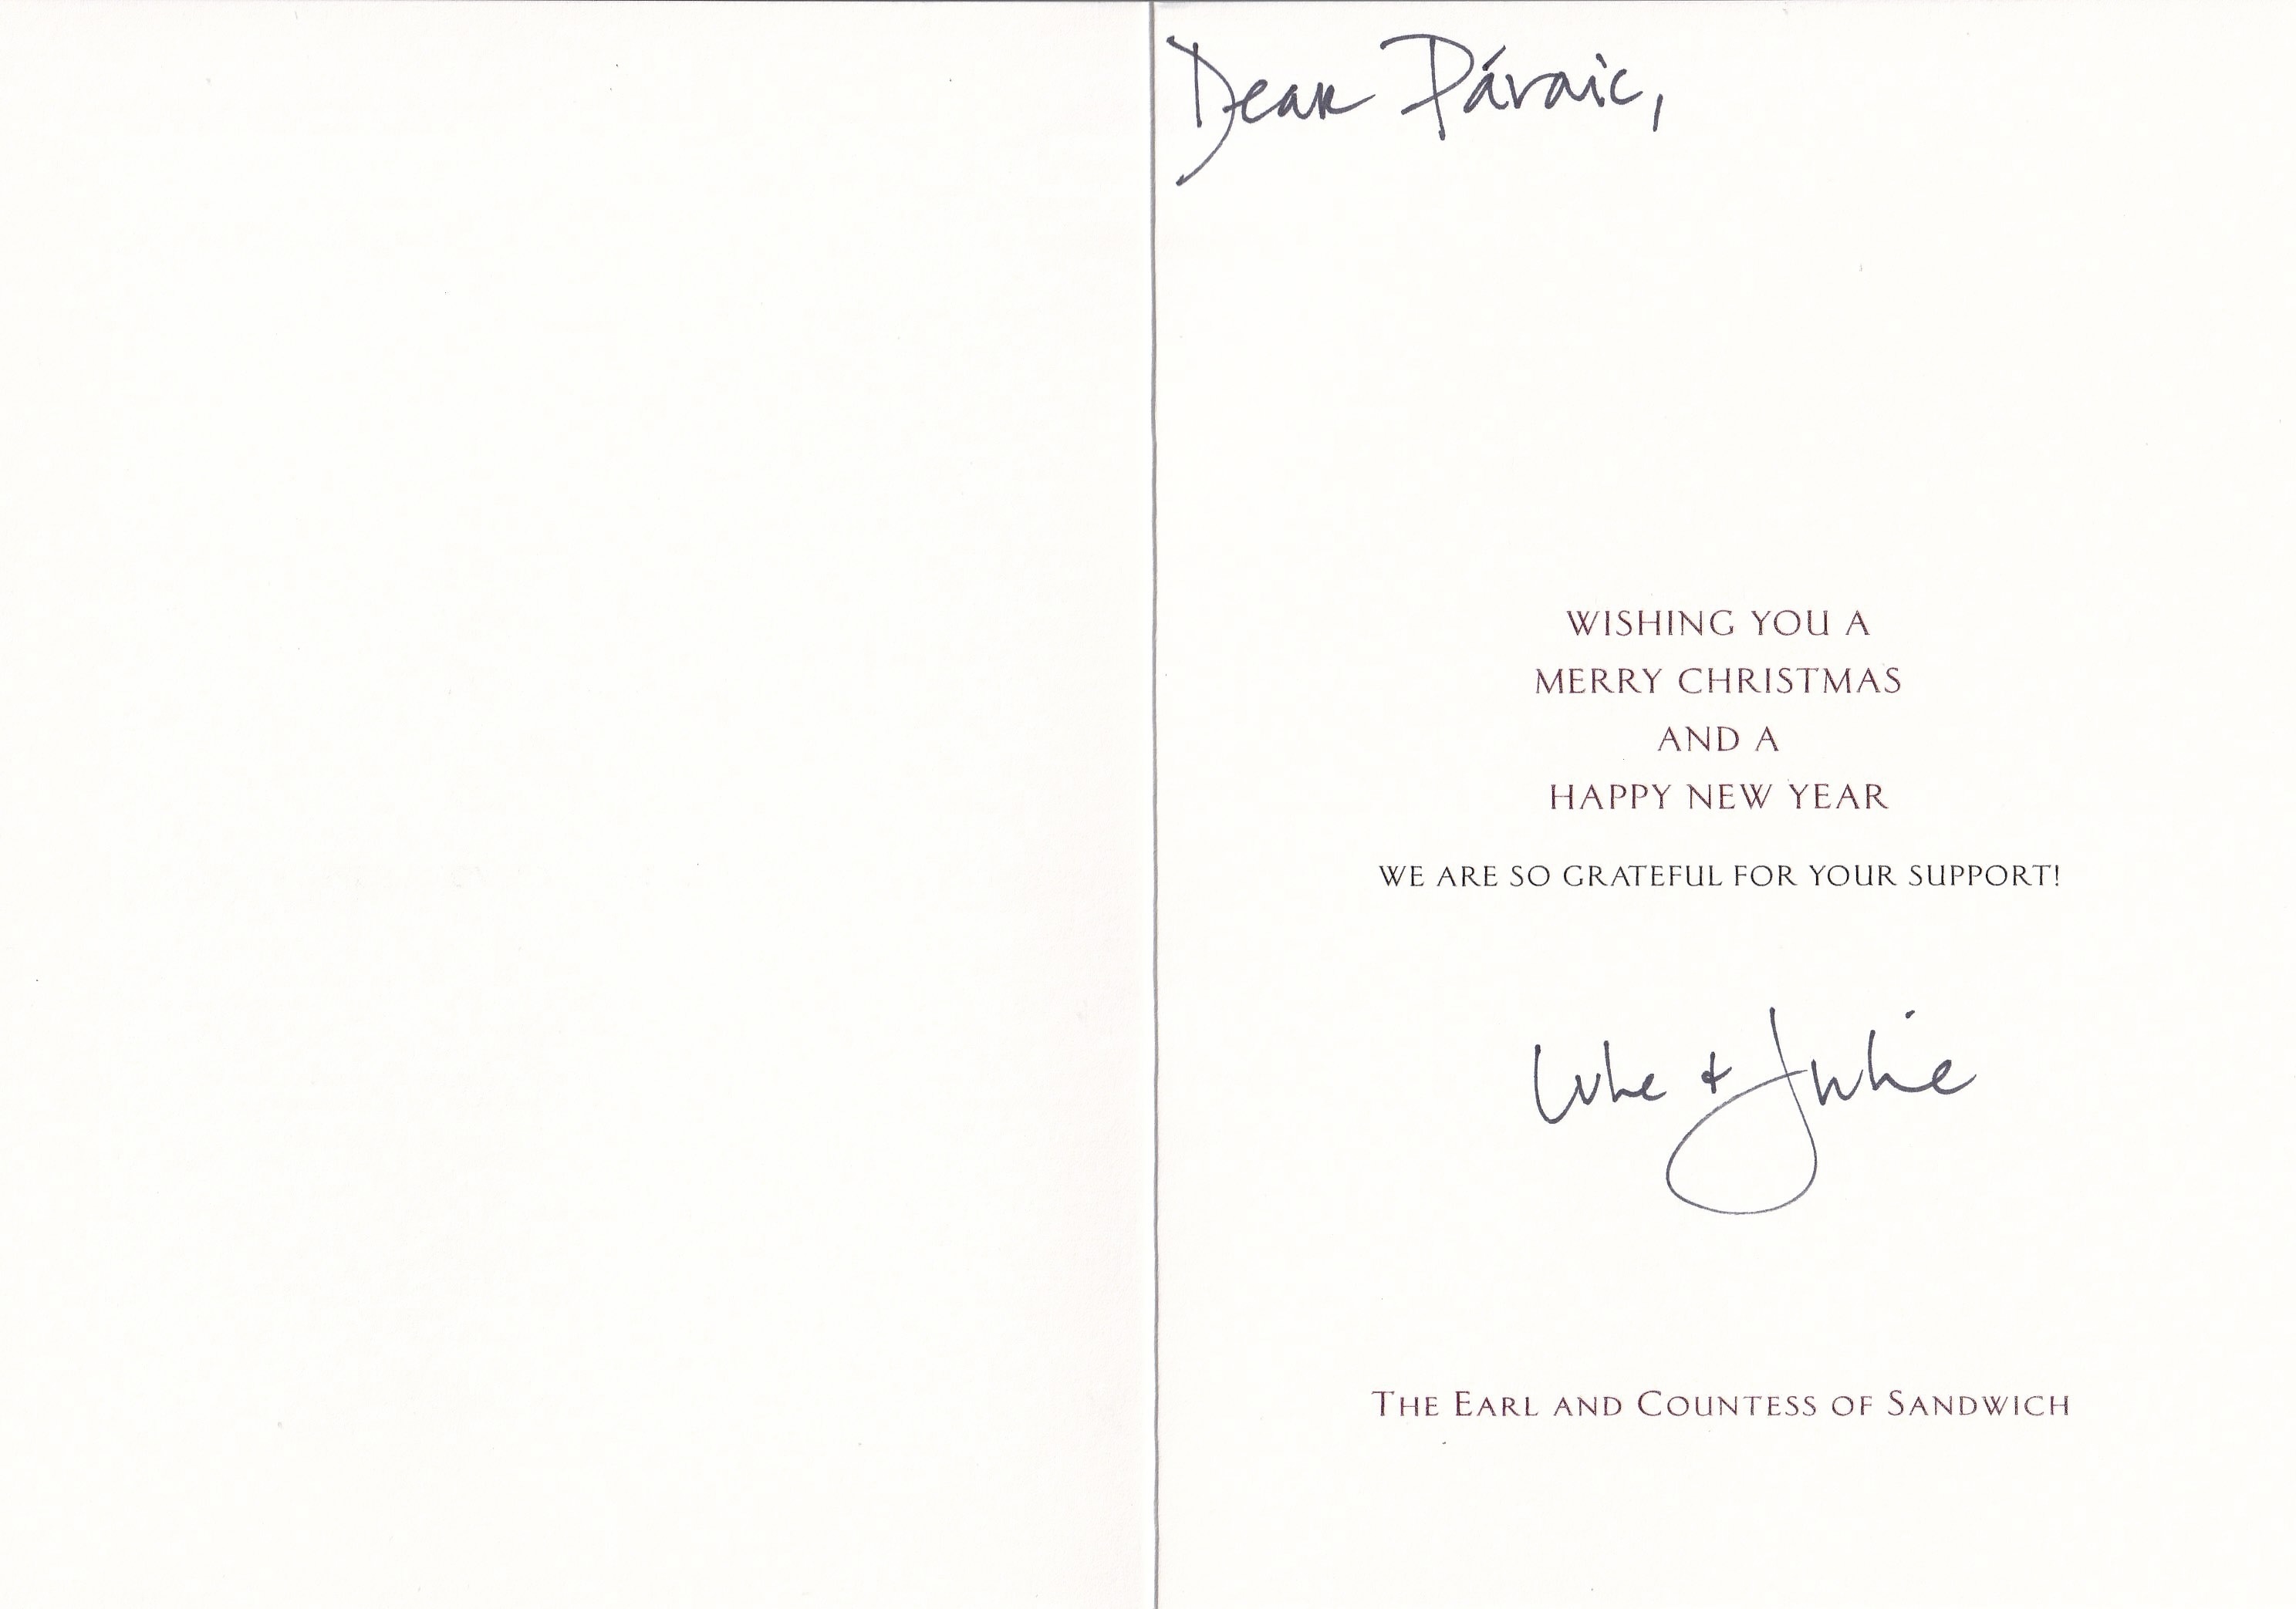 Dear Páraic,
WISHING YOU A
MERRY CHRISTMAS
AND A
HAPPY NEW YEAR
WE ARE SO GRATEFUL FOR YOUR SUPPORT!
Luke & Julie
THE EARL AND COUNTESS OF SANDWICH